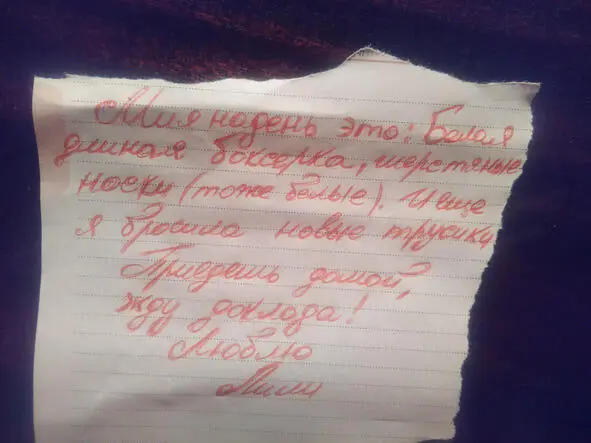 Мия надень это: Белая
длиная боксерка, шерстяные
носки (тоже белые). И еще
я бросила новые трусики
Приедешь домой,
жду доклада!
Люблю
Лили